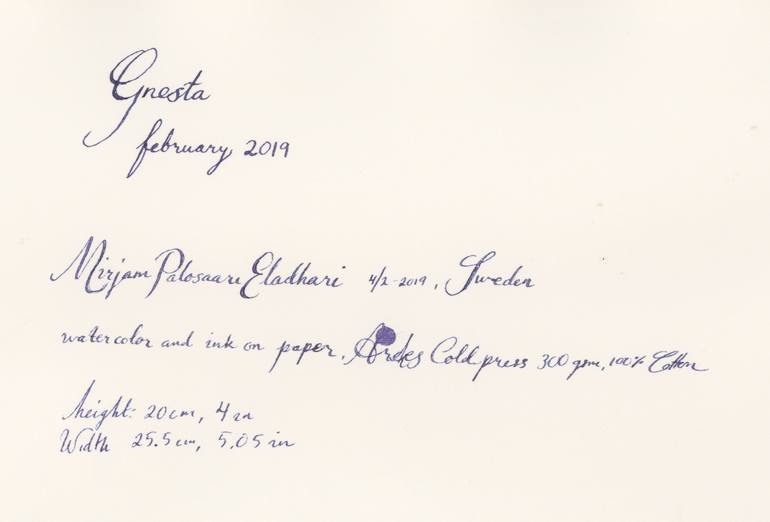 Gnesta
february 2019
Mirjam Palosaari Eladhari 4/2-2019, Sweden
watercolor and ink on paper. Arches Cold press 300 gsm, 100% Cotton
height: 20cm, 4 in
Width 25.5 cm, 5,05 in